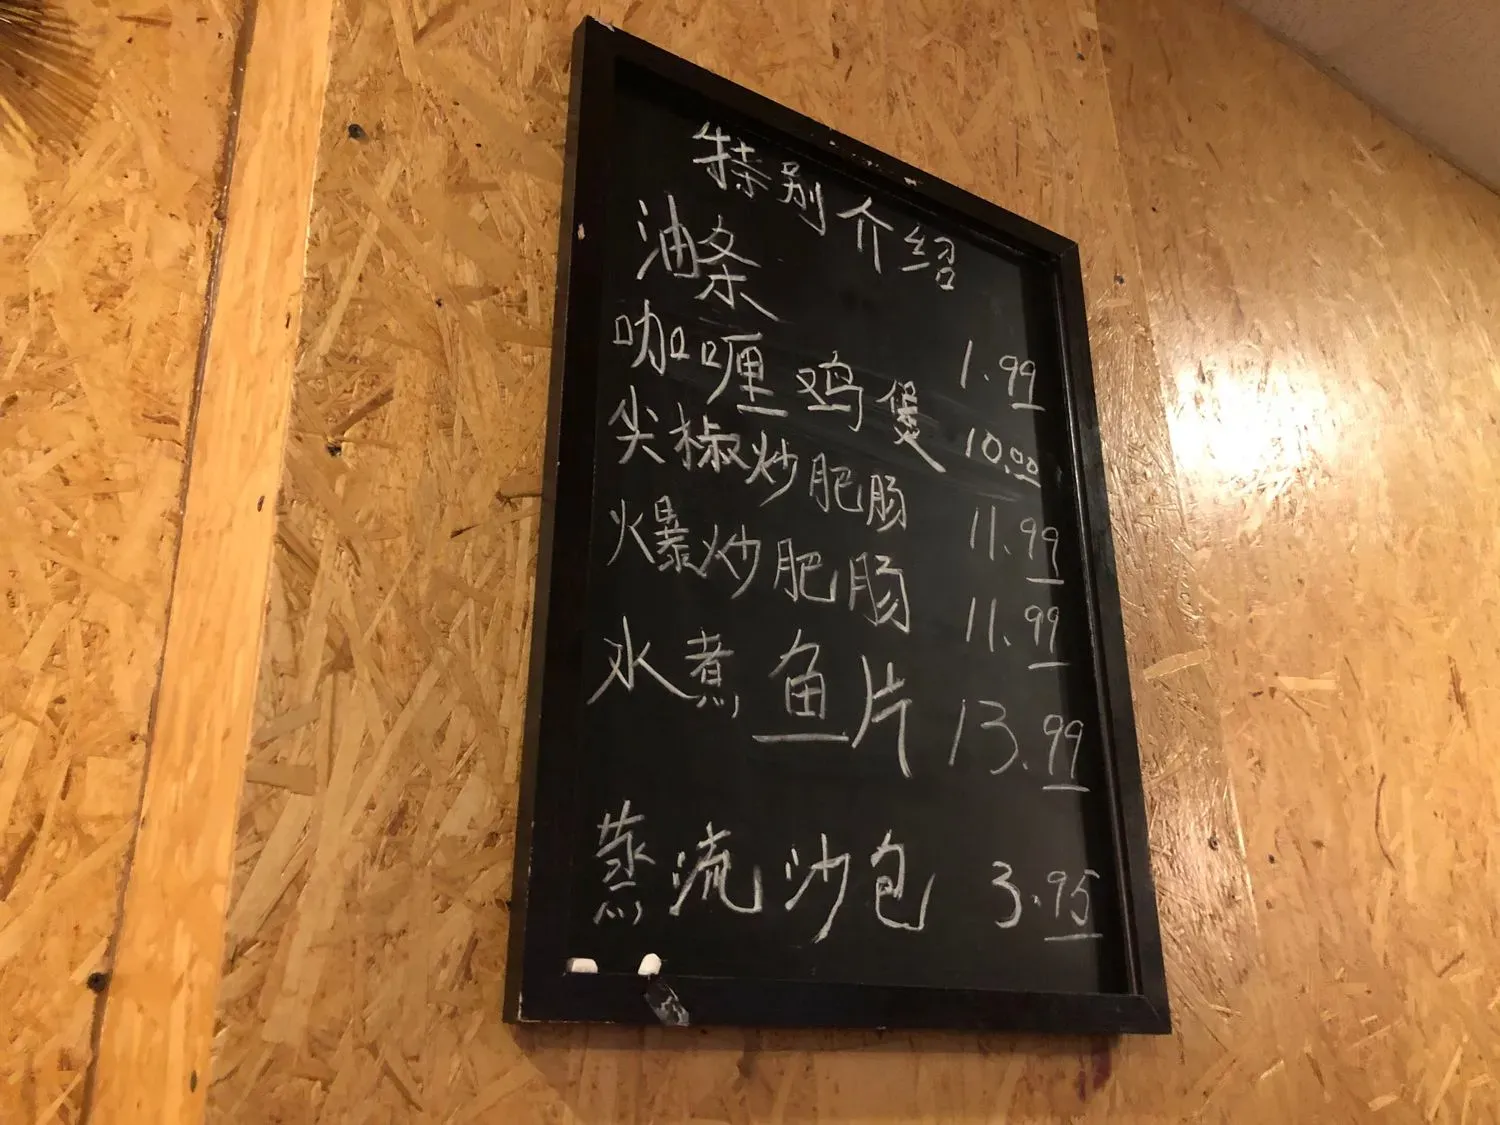 特别介绍
油条 1.99
咖喱鸡煲 10.00
尖椒炒肥肠 11.99
爆炒肥肠 11.99
水煮鱼片 13.99
蒸流沙包 3.95